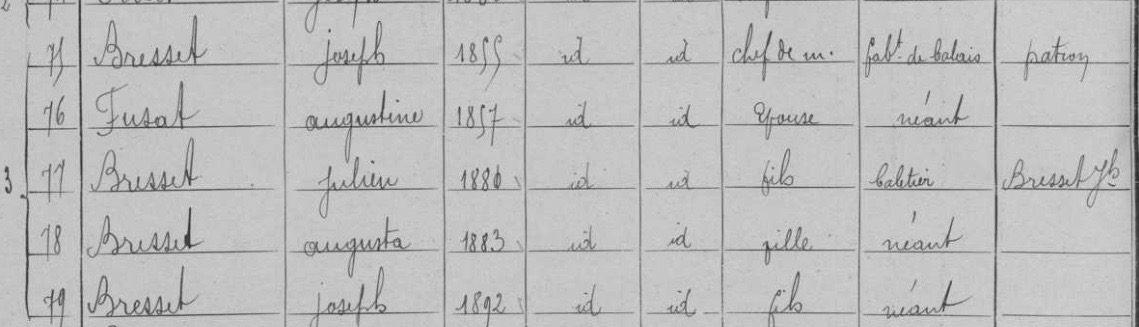 75 Bresset joseph 1855 id id chef de m. fabt. de balais patron
76 Fusat augustine 1857 id id Epouse néant
3 77 Bresset Julien 1880 id id fils baletier Bresset Jh
78 Bresset augusta 1883 id id fille néant
79 Bresset joseph 1892 id id fils néant